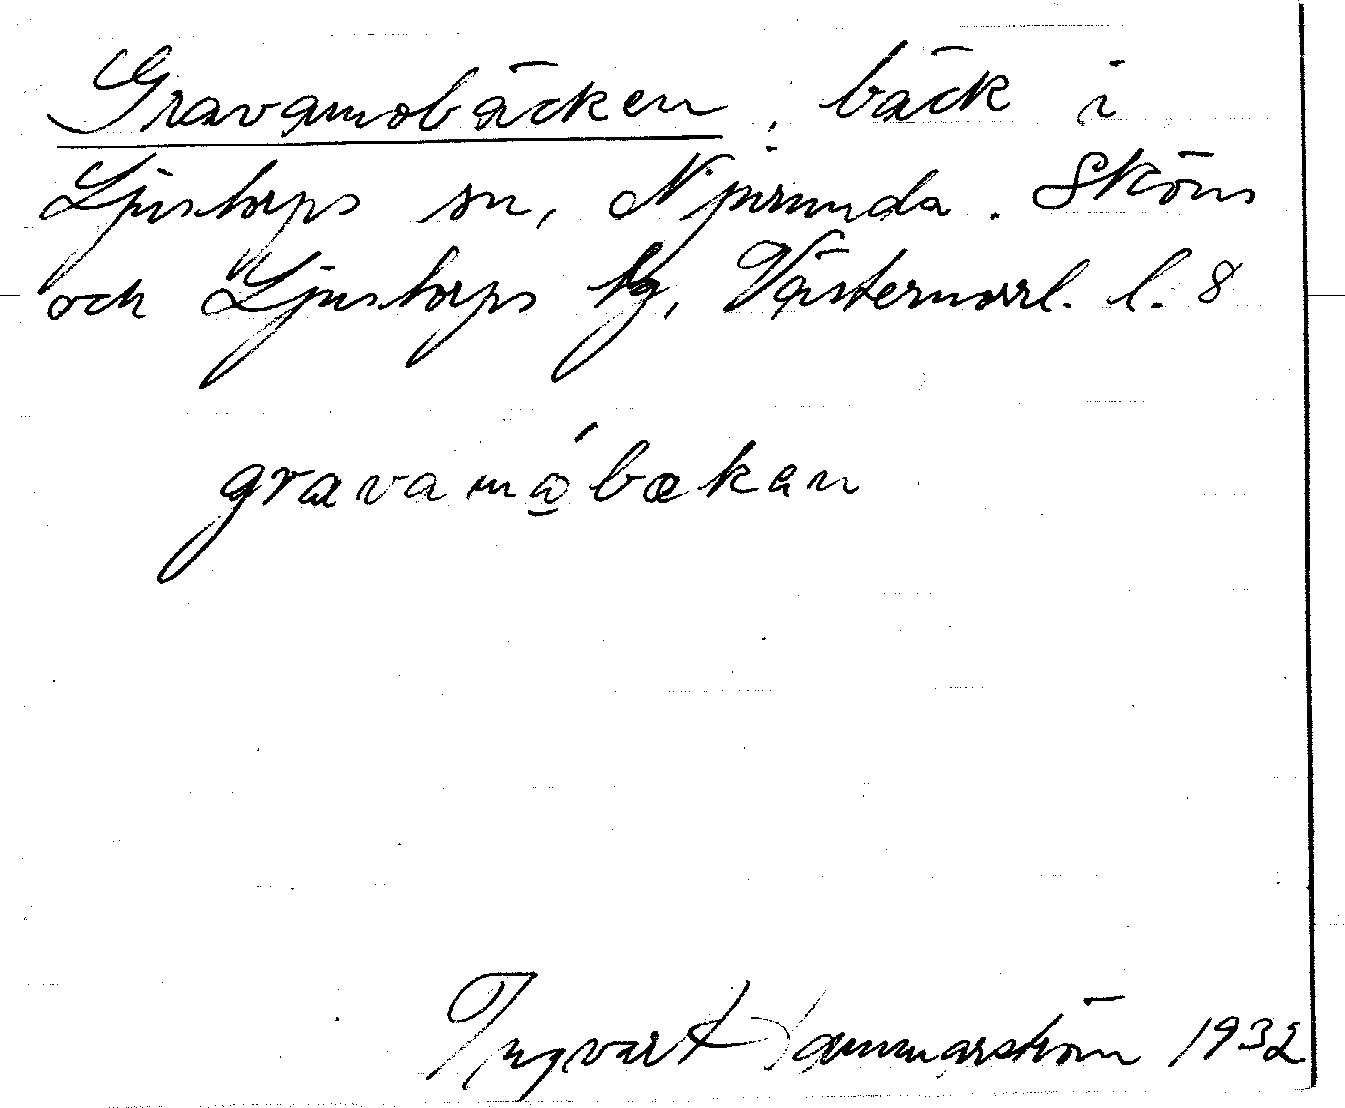 Gravamobäcken, bäck i
Ljustorps sn, Njurunda. Sköns
och Ljustorps tg, Västernorrl. l. 8
gravamåbækan
Ingvart Hammarström 1932